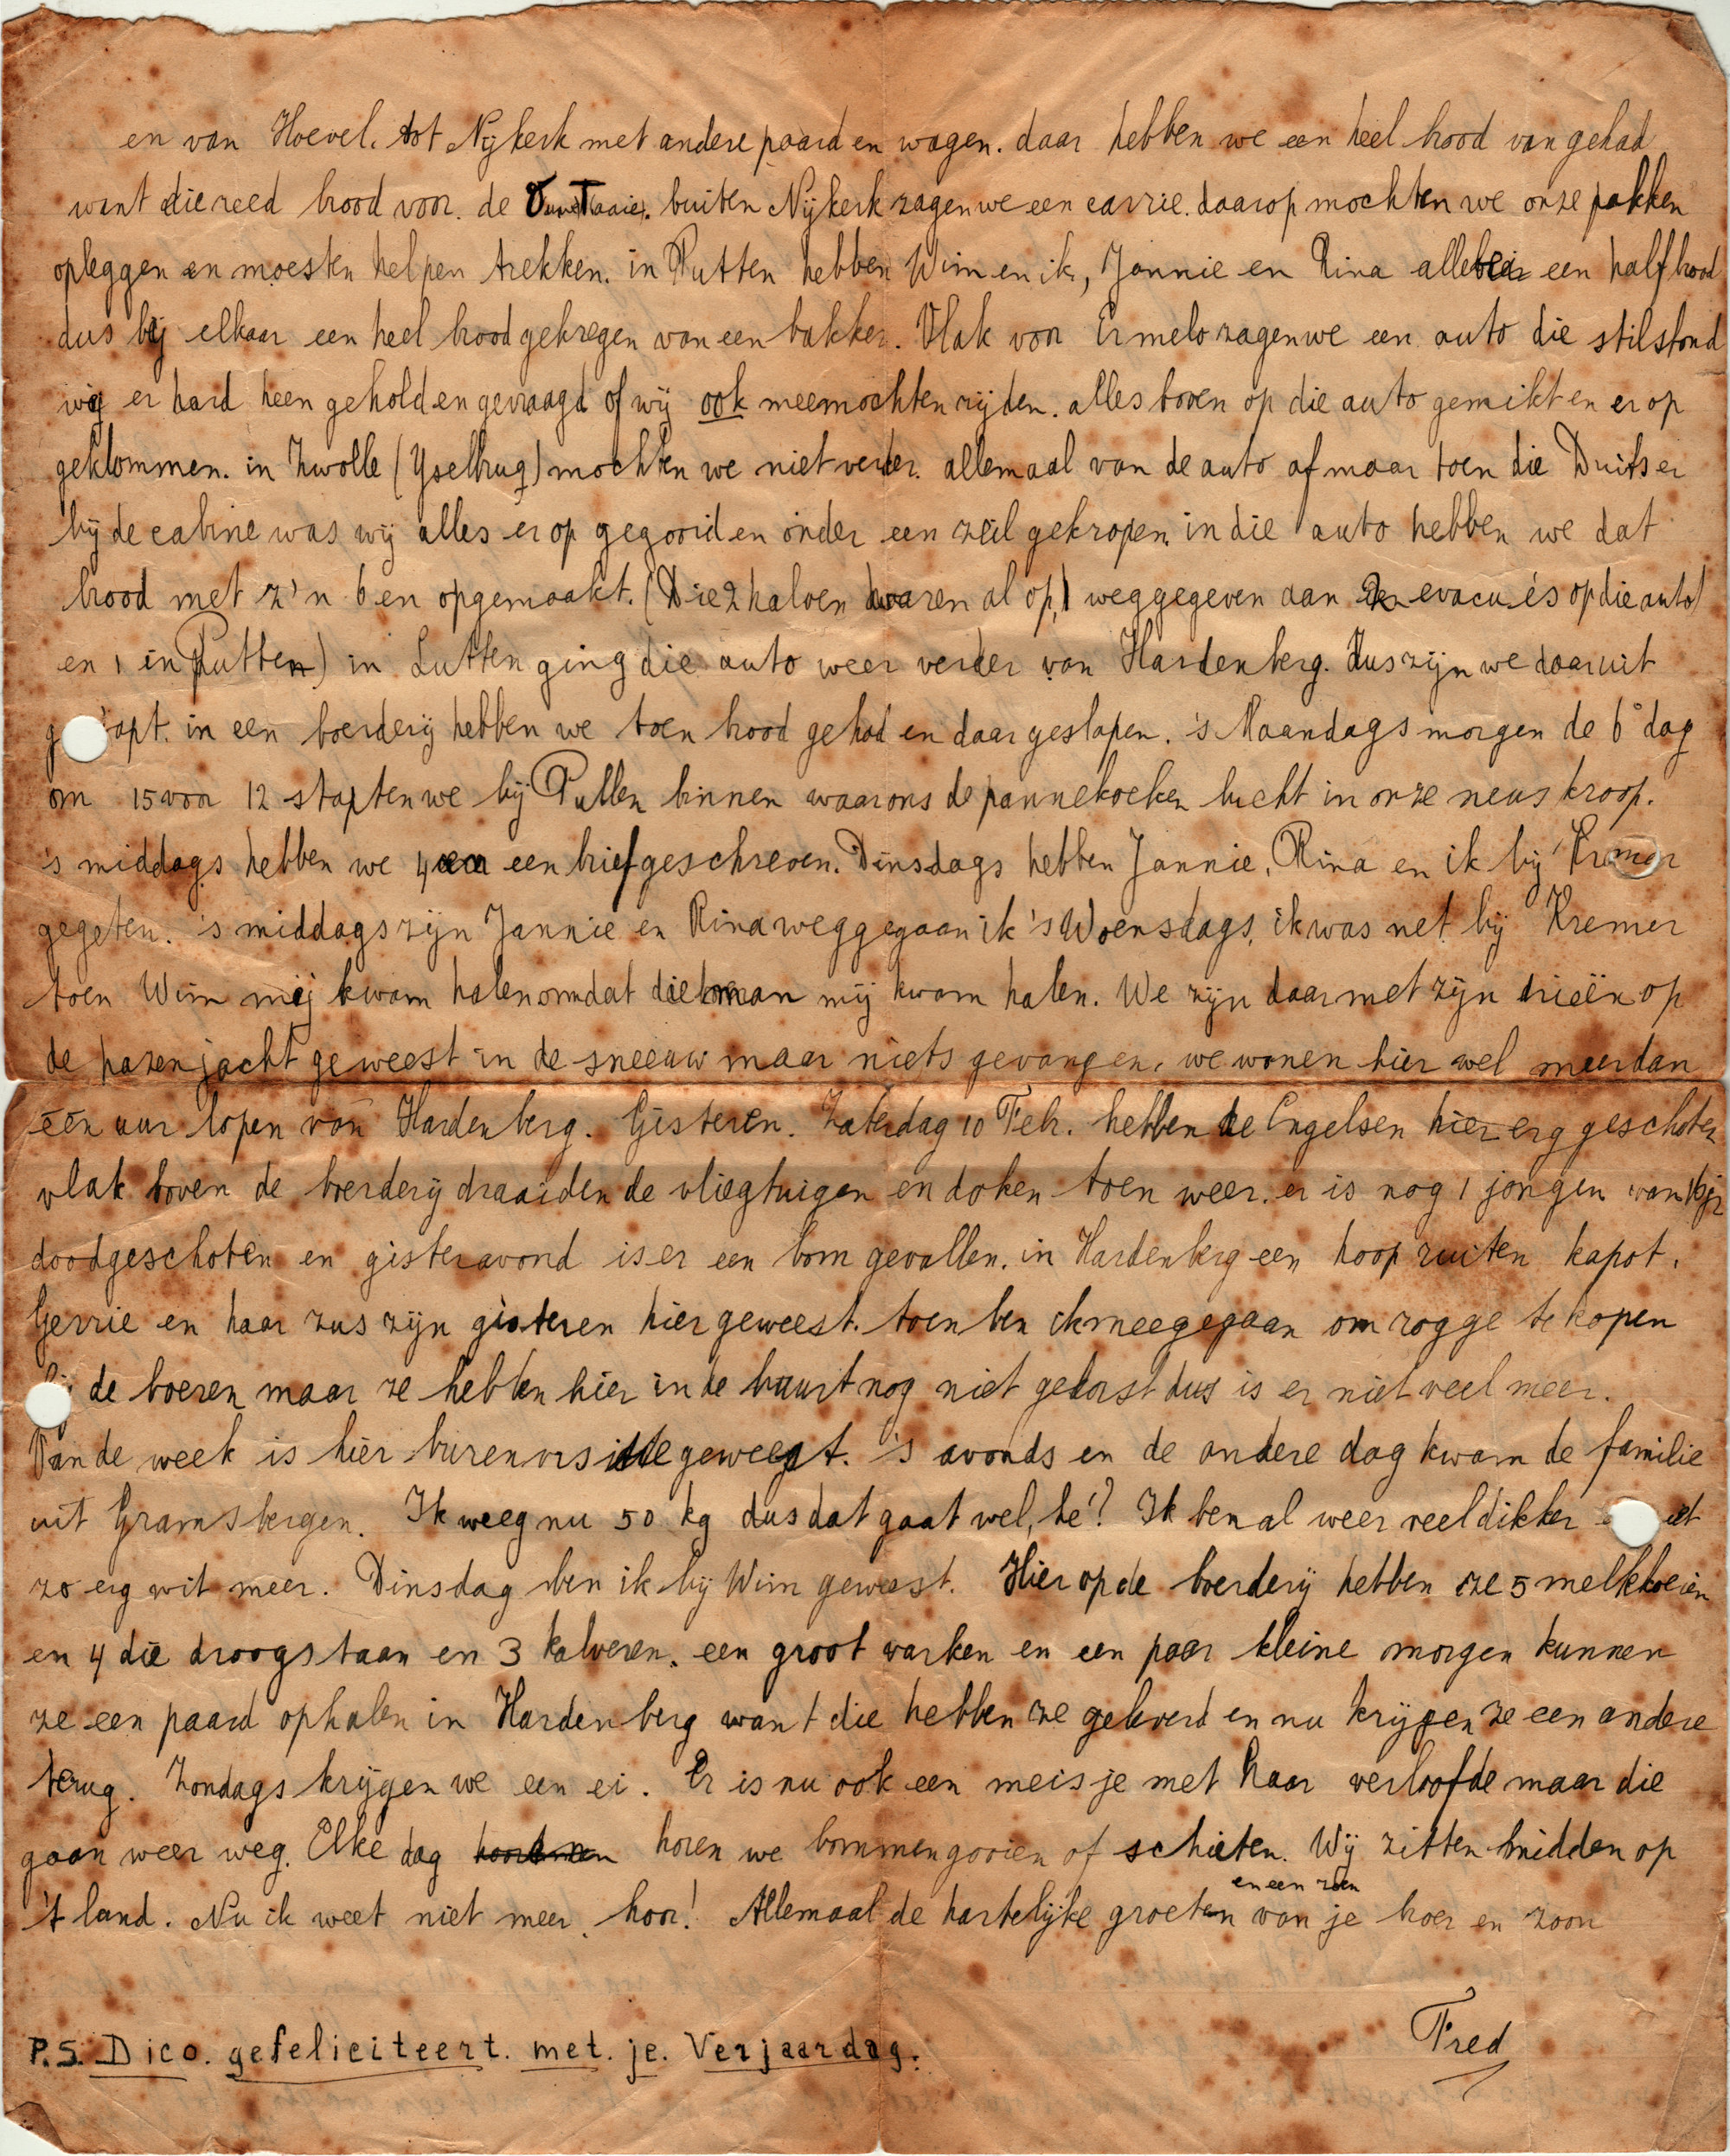 en van Hoevel. tot Nijkerk met andere paard en wagen. daar hebben we een heel brood van gehad
want die reed brood voor. de buiten Nijkerk zagen we een carrie. daarop mochten we onze pakken
opleggen en moesten helpen trekken. in Putten hebben Wim en ik, Jannie en Rina allebei een half brood
dus bij elkaar een heel brood gekregen van een bakker. Vlak voor Ermelo zagen we een auto die stilstond
wij er hard heen gehold en gevraagd of wij ook meemochten rijden. alles boven op die auto gemikt en er op
geklommen. in Zwolle (Yselbrug) mochten we niet verder. allemaal van de auto af maar toen die Duitser
bij de cabine was wij alles er op gegooid en onder een zeil gekropen. in die auto hebben we dat
brood met z'n 6en opgemaakt. (Die 2 halven waren al op, 1 weggegeven aan evacué's op die auto
en 1 in Putten) in Lutten ging die auto weer verder van Hardenberg. Dus zijn we daaruit
in een boerderij hebben we toen brood gehad en daar geslapen. 's Maandagsmorgen de 6e dag
om 15 voor 12 stapten we bij Pullen binnen waar ons de pannekoeken lucht in onze neus kroop.
's middags hebben we 4 een brief geschreven. Dinsdags hebben Jannie, Rina en ik bij Kremer
gegeten. 's middags zijn Jannie en Rina weggegaan ik 's Woensdags, ik was net bij Kremer
toen Wim mij kwam halen omdat die man mij kwam halen. We zijn daar met zijn drieën op
de hazenjacht geweest in de sneeuw maar niets gevangen. we wonen hier wel meer dan
één uur lopen van Hardenberg. Gisteren. Zaterdag 10 Febr. hebben de Engelsen hier erg geschoten
vlak boven de boerderij draaiden de vliegtuigen en doken toen weer. er is nog 1 jongen van 16 jr
doodgeschoten en gisteravond is er een bom gevallen. in Hardenberg een hoop ruiten kapot.
Gerrie en haar zus zijn gisteren hier geweest. toen ben ik meegegaan om rogge te kopen
de boeren maar ze hebben hier in de buurt nog niet gedorst dus is er niet veel meer.
Van de week is hier buren visite geweest. 's avonds en de andere dag kwam de familie
uit Gramsbergen. Ik weeg nu 50 kg dus dat gaat wel, hè? Ik ben al weer veel dikker
zo erg wit meer. Dinsdag ben ik bij Wim geweest. Hier op de boerderij hebben ze 5 melkkoeien
en 4 die droogstaan en 3 kalveren. een groot varken en een paar kleine morgen kunnen
ze een paard ophalen in Hardenberg want die hebben ze geleverd en nu krijgen ze een andere
terug. Zondags krijgen we een ei. Er is nu ook een meisje met haar verloofde maar die
gaan weer weg. Elke dag horen we bommengooien of schieten. Wij zitten midden op
't land. Nu ik weet niet meer hoor! Allemaal de hartelijke groeten en een zoen van je broer en zoon
Fred
P.S. Dico. gefeliciteert. met. je. Verjaardag.